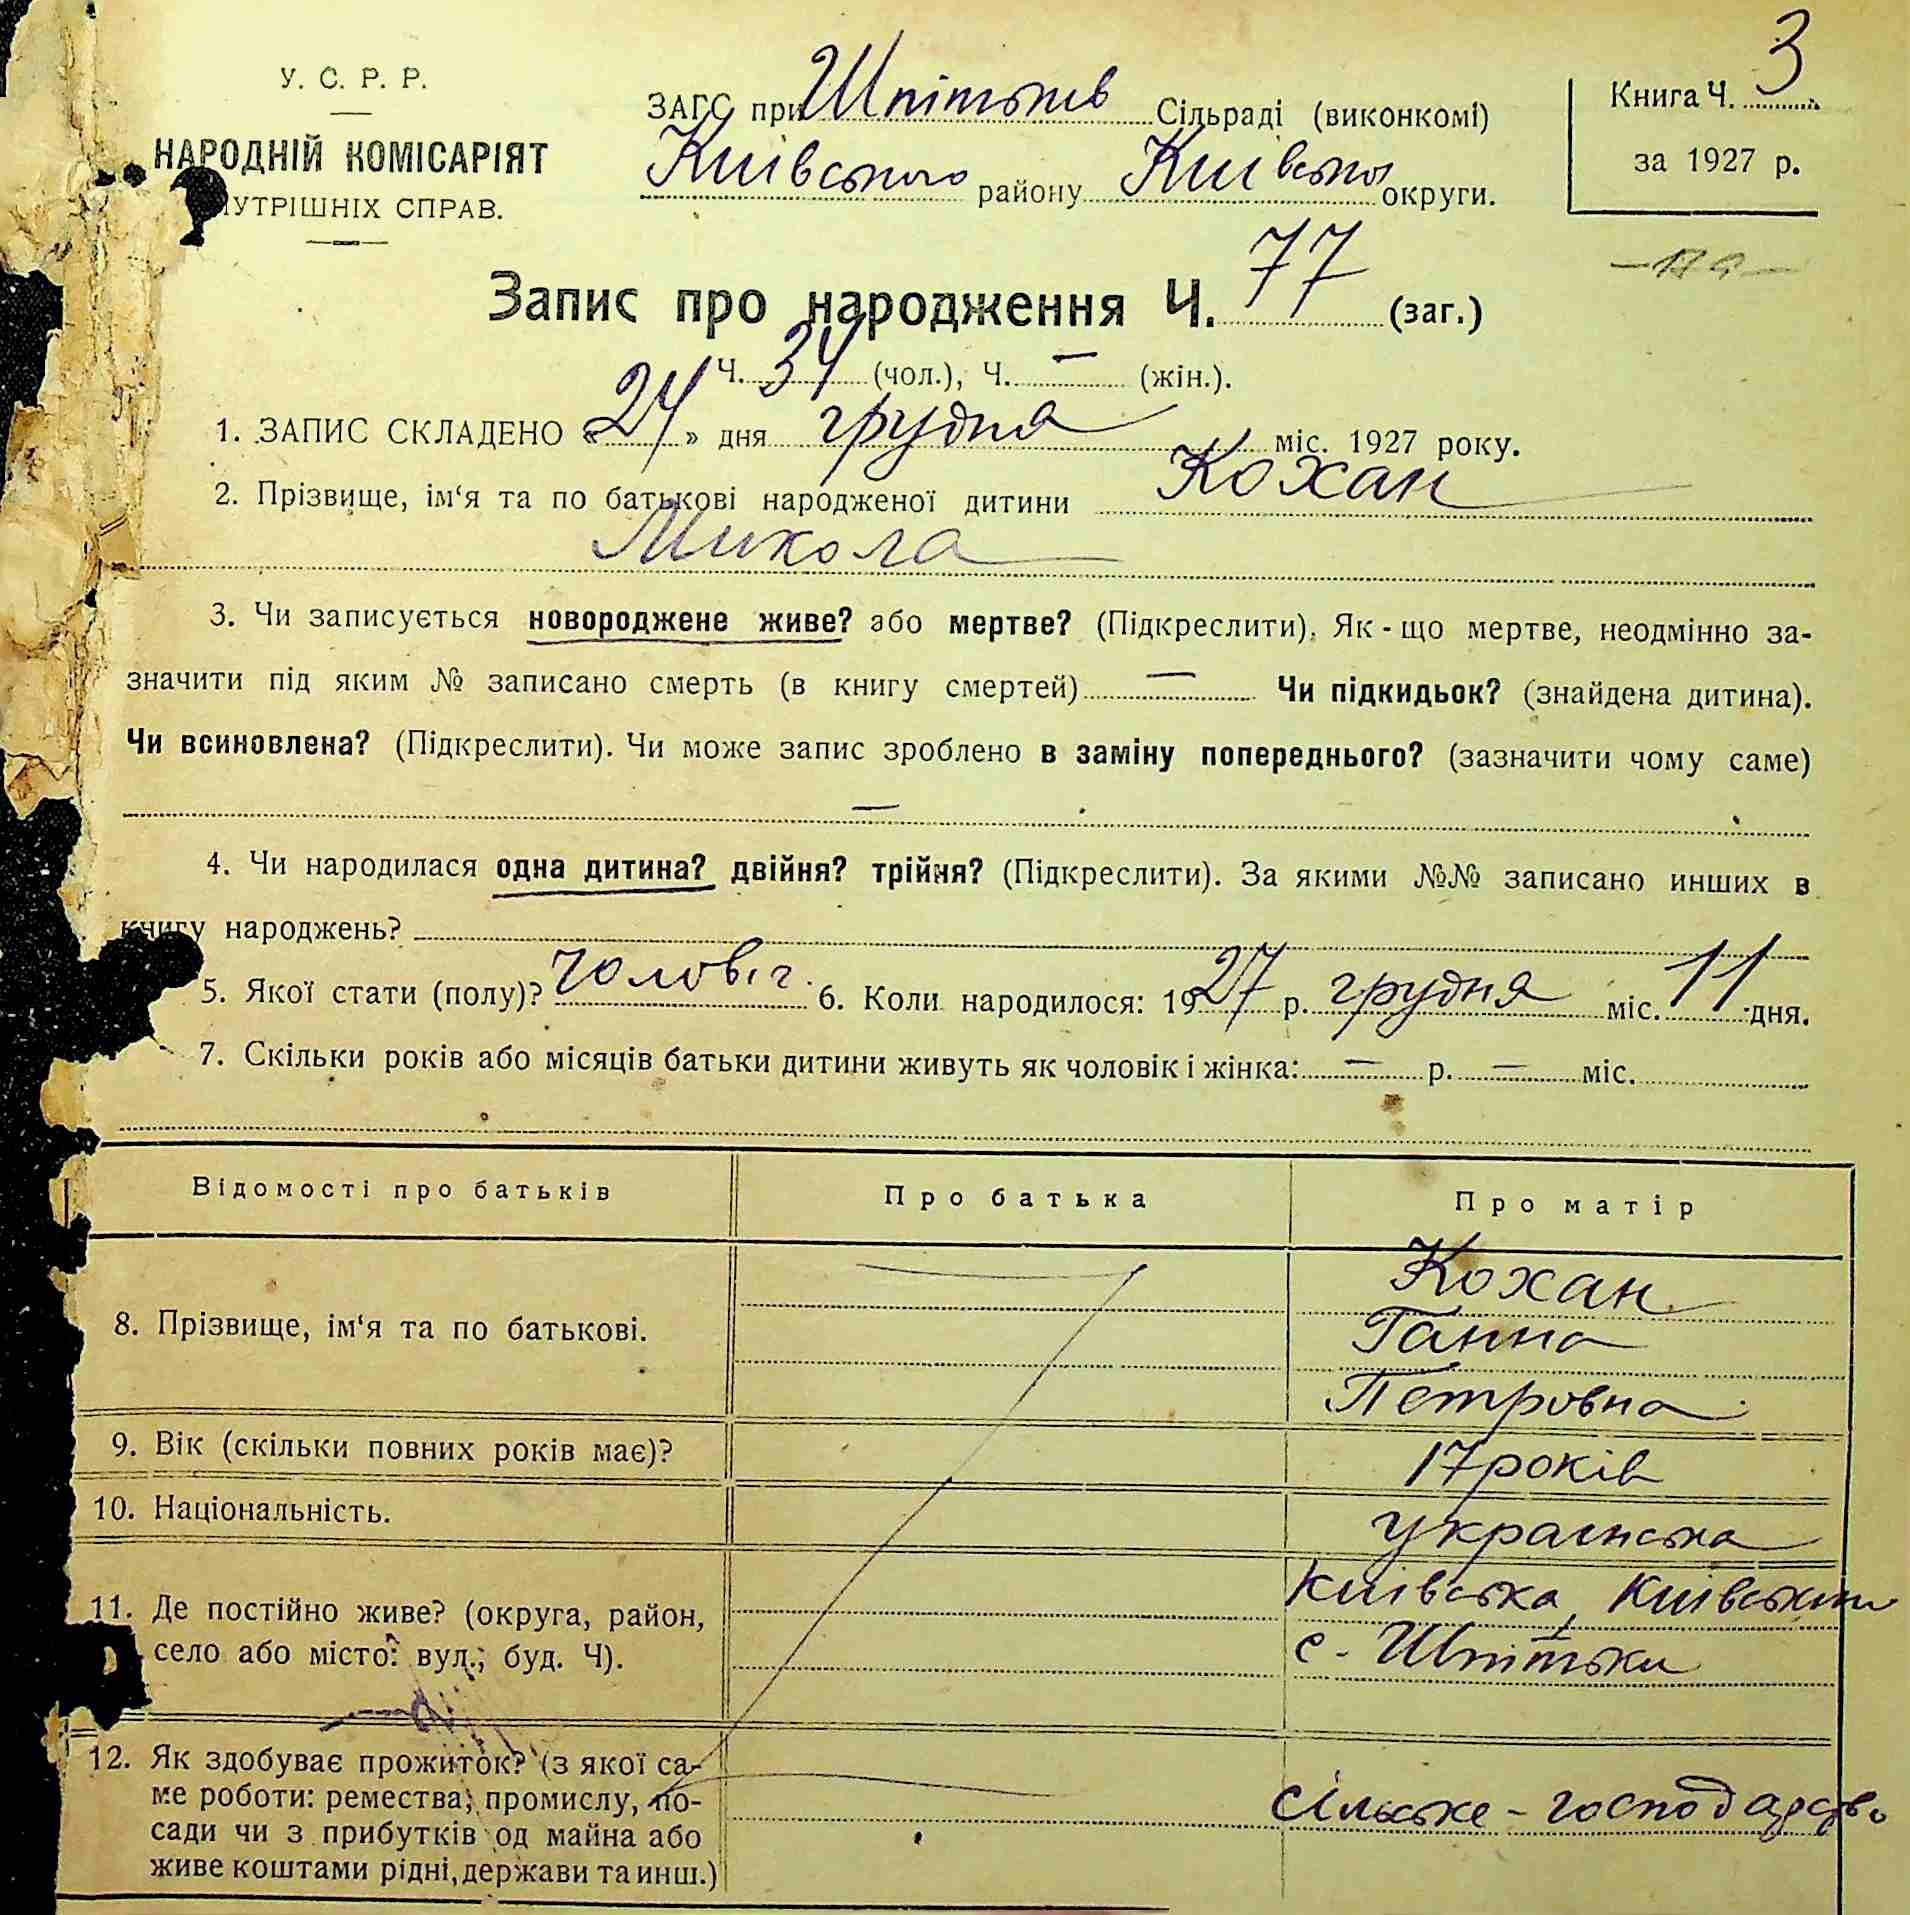 У. С. Р. Р.
НАРОДНІЙ КОМІСАРІЯТ
НУТРІШНІХ СПРАВ.
ЗАГС при Шпітьків Сільраді (виконкомі)
Київського району Київської округи.
Книга Ч. 3
за 1927 р.
Запис про народження Ч. 77 (заг.)
Ч. 34 (чол.), Ч. — (жін.).
1. ЗАПИС СКЛАДЕНО « 24 » дня грудня міс. 1927 року.
2. Прізвище, ім‘я та по батькові народженої дитини Кохан
Микола
3. Чи записується новороджене живе? або мертве? (Підкреслити). Як-що мертве, неодмінно за-
значити під яким № записано смерть (в книгу смертей) — Чи підкидьок? (знайдена дитина).
Чи всиновлена? (Підкреслити). Чи може запис зроблено в заміну попереднього? (зазначити чому саме)
—
4. Чи народилася одна дитина? двійня? трійня? (Підкреслити). За якими №№ записано инших в
книгу народжень?
5. Якої стати (полу)? чоловіч. 6. Коли народилося: 1927 р. грудня міс. 11 дня.
7. Скільки років або місяців батьки дитини живуть як чоловік і жінка: — р. — міс.
Відомості про батьків Про батька Про матір
8. Прізвище, ім‘я та по батькові. Кохан
Ганна
Петровна
9. Вік (скільки повних років має)? 17 років
10. Національність. українська
11. Де постійно живе? (округа, район, Київська, Київський
село або місто: вул.; буд. Ч). с. Шпітьки
12. Як здобуває прожиток? (з якої са-
ме роботи: ремества, промислу, по- сільське-господарство
сади чи з прибутків од майна або
живе коштами рідні, держави та инш.)